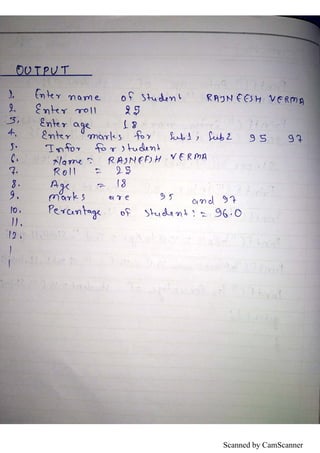 OUTPUT
1. Enter name of student RAJNEESH VERMA
2. Enter roll 25
3. Enter age 18
4. Enter marks for sub1, sub2 95 97
5. Infor for student
6. Name = RAJNEESH VERMA
7. Roll = 25
8. Age = 18
9. marks are 95 and 97
10. Percentage of student: = 96.0
11.
12.
Scanned by CamScanner